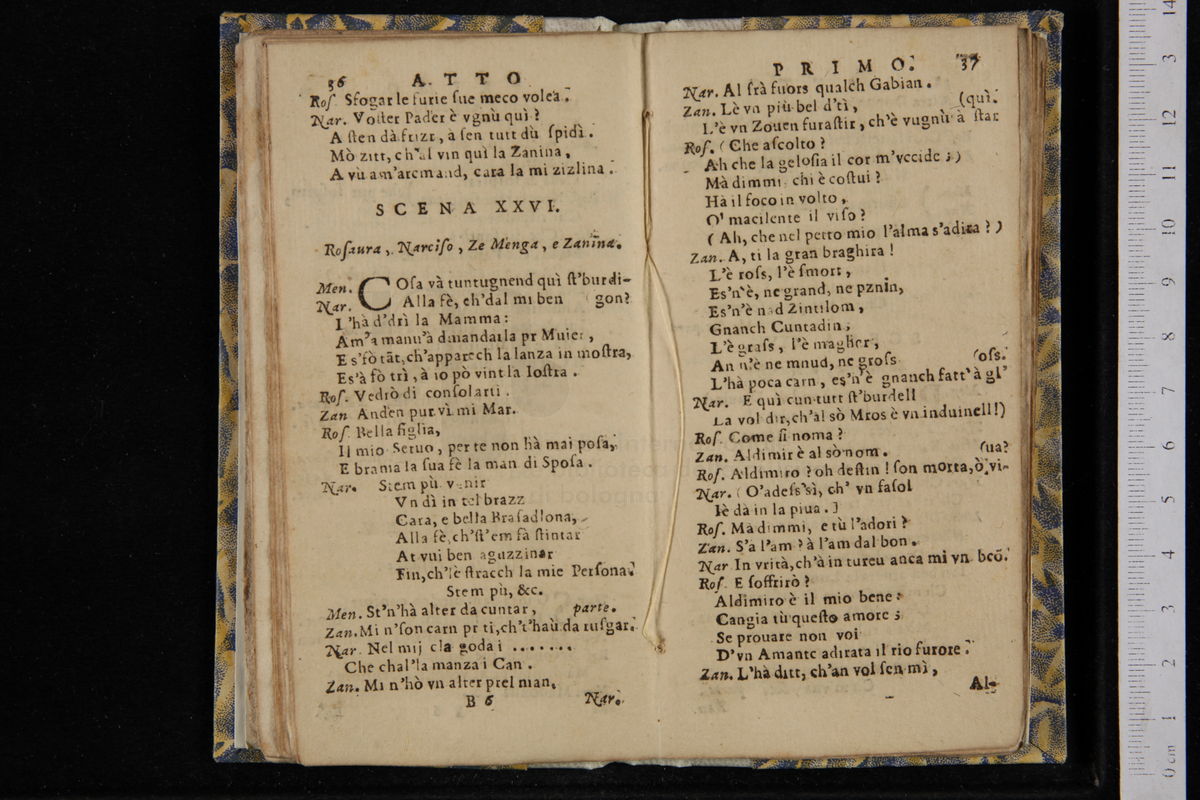 36 ATTO
Roſ. Sfogar le furie ſue meco volea.
Nar. Voſter Pader è vgnù quì?
A ſten dà frizr, à ſen tutt dù ſpidì.
Mò zitt, ch'al vin quì la Zanina,
A vù am'arcmand, cara la mi zizlina.
SCENA XXVI.
Roſaura, Narciſo, Ze Menga, e Zanina.
Men. COſa và tuntugnend quì ſt'burdi-
Nar. Alla fè, ch'dal mi ben gon?
L'hà d'drì la Mamma:
Am'à manu'à dmandarla pr Muier,
E s'fò tãt, ch'apparech la lanza in moſtra,
Es'à fò trì, à io pò vint la Ioſtra.
Roſ. Vedrò di conſolarti.
Zan. Anden pur vì mi Mar.
Roſ. Bella figlia,
Il mio Seruo, per te non hà mai poſa,
E brama la ſua fè la man di Spoſa.
Nar. Stem pù venir
Vn dì in tel brazz
Cara, e bella Braſadlona,
Alla fè, ch'ſt'em fà ſtintar
At vui ben aguzzinar
Fin, ch'lè ſtracch la mie Perſona.
Stem pù, &c.
Men. St'n'hà alter da cuntar, parte.
Zan. Mi n'ſon carn pr ti, ch't'haù da ruſgar.
Nar. Nel mij cla goda i .......
Che chal'la manza i Can.
Zan. Mi n'hò vn alter prel man,
B 6 Nar.
PRIMO. 37
Nar. Al frà fuors qualch Gabian.
Zan. Lè vn più bel d'tì, (quì.
L'è vn Zouen furaſtir, ch'è vugnù à ſtar
Roſ. (Che aſcolto?
Ah che la geloſia il cor m'vccide;)
Mà dimmi, chi è coſtui?
Hà il foco in volto,
O' macilente il viſo?
(Ah, che nel petto mio l'alma s'adira?)
Zan. A, ti la gran braghira!
L'è roſs, l'è ſmort,
Es'n'è, ne grand, ne pznin,
Es'n'è nad Zintilom,
Gnanch Cuntadin,
L'è graſs, l'è magher,
An n'è ne mnud, ne groſs (oſs.
L'hà poca carn, es'n'è gnanch fatt'à gl'
Nar. E quì cun tutt ſt'burdell
La vol dir, ch'àl sò Mros è vn induinell!)
Roſ. Come ſi noma?
Zan. Aldimir è al sò nom. (ua?
Roſ. Aldimiro? oh deſtin! ſon morta, ò vi-
Nar. (O'adeſs'sì, ch' vn faſol
Iè dà in la piua.)
Roſ. Mà dimmi, e tù l'adori?
Zan. S'a l'am? à l'am dal bon.
Nar In vrità, ch'à in tureu anca mi vn bcõ.
Roſ. E ſoffrirò?
Aldimiro è il mio bene:
Cangia tù queſto amore;
Se prouare non voi
D'vn Amante adirata il rio furore.
Zan. L'hà ditt, ch'an vol ſen mì,
Al-